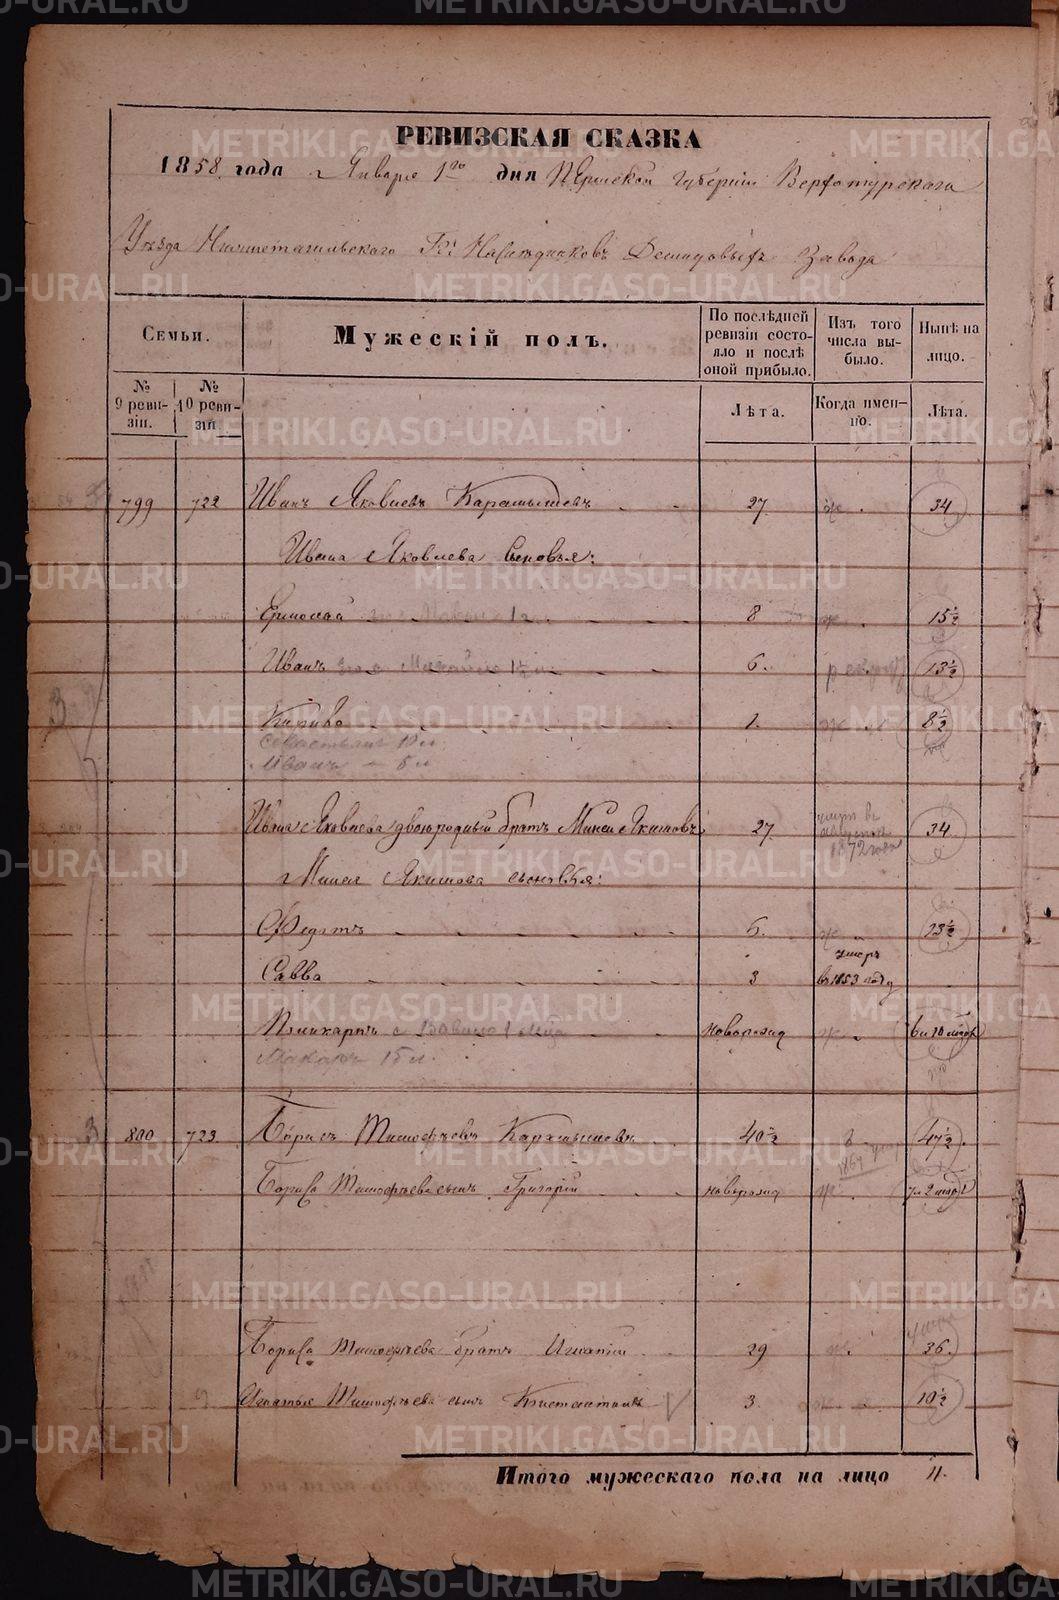 РЕВИЗСКАЯ СКАЗКА
1858 года Января 1го дня Пермской губернии Верхотурскаго
Уѣзда Нижнетагильскаго Гг. Наслѣдниковъ Демидовыхъ Завода
Семьи.
Мужескій полъ.
По послѣдней ревизіи состояло и послѣ оной прибыло.
Изъ того числа выбыло.
Нынѣ на лицо.
№ 9 ревизіи.
№ 10 ревизіи
Лѣта.
Когда именно.
Лѣта.
799 722 Иванъ Яковлевъ Карамышевъ 27 34
Ивана Яковлева Сыновья:
Ермолай 8 15½
Иванъ 6. 13½
Кирило 1. 8½
Севастьян 10 л
Иванъ - 5 л
Ивана Яковлева двоюродный братъ Якимовъ 27 34
Якимова сыновья:
Федотъ 6. 13½
Савва 3 умеръ въ 1853 году
новорожд
Макаръ 15 л.
800 723 Борисъ Тимофѣевъ Карамышевъ 40½ 47½
Бориса Тимофѣева сынъ Григорій новорожд
Бориса Тимофѣева братъ Игнатій 29 36.
Игнатья Тимофѣева сынъ Констатинъ 3. 10½
Итого мужескаго пола на лицо 11.
METRIKI.GASO-URAL.RU